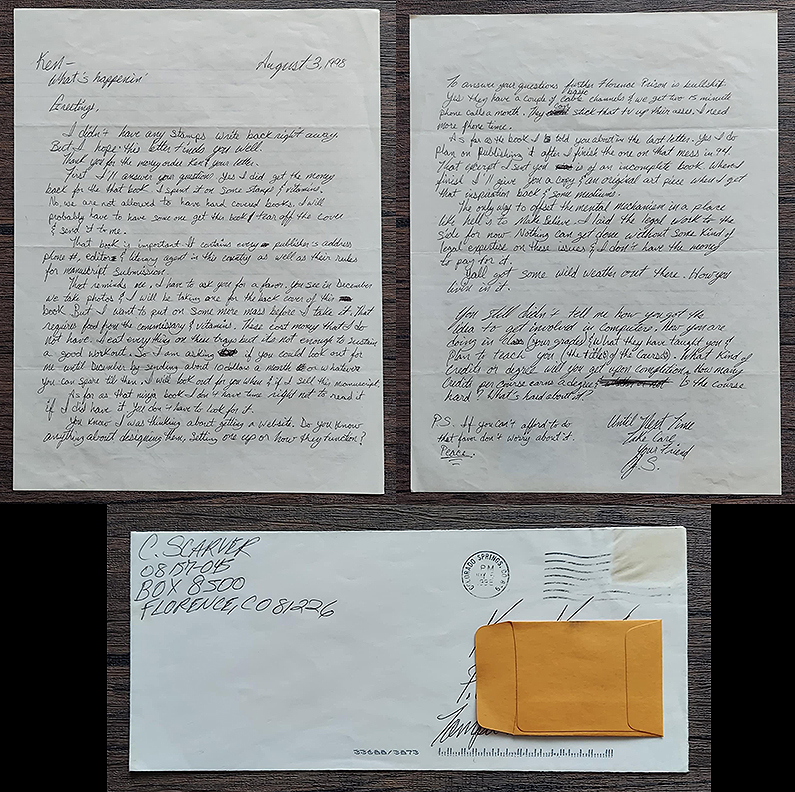 Ken-
August 3, 1998
What's happenin'
Greetings,
I didn't have any stamps write back right away.
But, I hope this letter finds you well.
Thank you for the money order Ken & your letter.
First I'll answer your questions. Yes I did get the money
back for the that book I spent it on some stamps & vitamins.
No, we are not allowed to have hard covered books. I will
probably have to have some one get this book & tear off the cover
& send it to me.
That book is important. It contains every publisher's address
phone #, editors & literary agent in this country as well as their rules
for manuscript submission.
That reminds me, I have to ask you for a favor. You see in December
we take photos & I will be taking one for the back cover of this
book. But I want to put on some more mass before I take it. That
requires food from the commissary & vitamins. These cost money that I do
not have. I eat everything on these trays but its not enough to sustain
a good workout. So I am asking if you could look out for
me until December by sending about 10 dollars a month or whatever
you can spare til then. I will look out for you when & if I sell this manuscript.
As for as that ninja book I don't have time right not to read it
if I did have it. You don't have to look for it.
You know I was thinking about getting a website. Do you know
anything about designing them, setting one up or how they function?
To answer your questions further Florence Prison is bullshit.
Yes they have a couple of basic cable channels & we get two 15 minute
phone calls a month. They can stick that tv up their asses. I need
more phone time.
As far as the book I told you about in the last letter. Yes I do
plan on publishing it after I finish the one on that mess in
That excerpt I sent you is of an incomplete book. When I
finish I'll give you a copy & an original art piece when I get
that inspiration back & some mediums.
The only way to offset the mental mechanism in a place
like hell is to Make Believe. I laid the legal work to the
side for now. Nothing can get done without some kind of
legal expertise on these issues & I don't have the money
to pay for it.
Yall got some wild weather out there. How you
livin in it.
You still didn't tell me how you got the
idea to get involved in computers. How you are
doing in (your grades) & What they have taught you &
plan to teach you (the titles of the courses). What kind of
credits or degree will you get upon completion. How many
credits per course earns a degree? Is the course
hard? What's hard about it?
P.S. If you can't afford to do
that favor don't worry about it.
Peace.
Until Next Time
Take Care
Your Friend
C. S.
C. SCARVER
08157-045
BOX 8500
FLORENCE, CO 81226
COLORADO SPRINGS, CO
PM
33688/3873